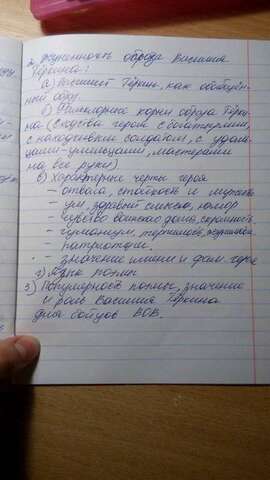 2. Жизненность образа Василия
Тёркина:
а) Василий Тёркин, как обобщён-
ный образ.
б) Фольклорные корни образа Тёрки-
на (сходство героя с богатырями,
с находчивым солдатом, с удаль-
цами-умельцами, мастерами
на все руки)
в) Характерные черты героя
- отвага, стойкость и мужество
- ум, здравый смысл, юмор
- чувство воинского долга, скромность
- гуманизм, терпимость,
патриотизм.
- значение имени и фам. героя
г) Язык поэмы
3) Популярность поэмы, значение
и роль Василия Тёркина
для бойцов ВОВ.